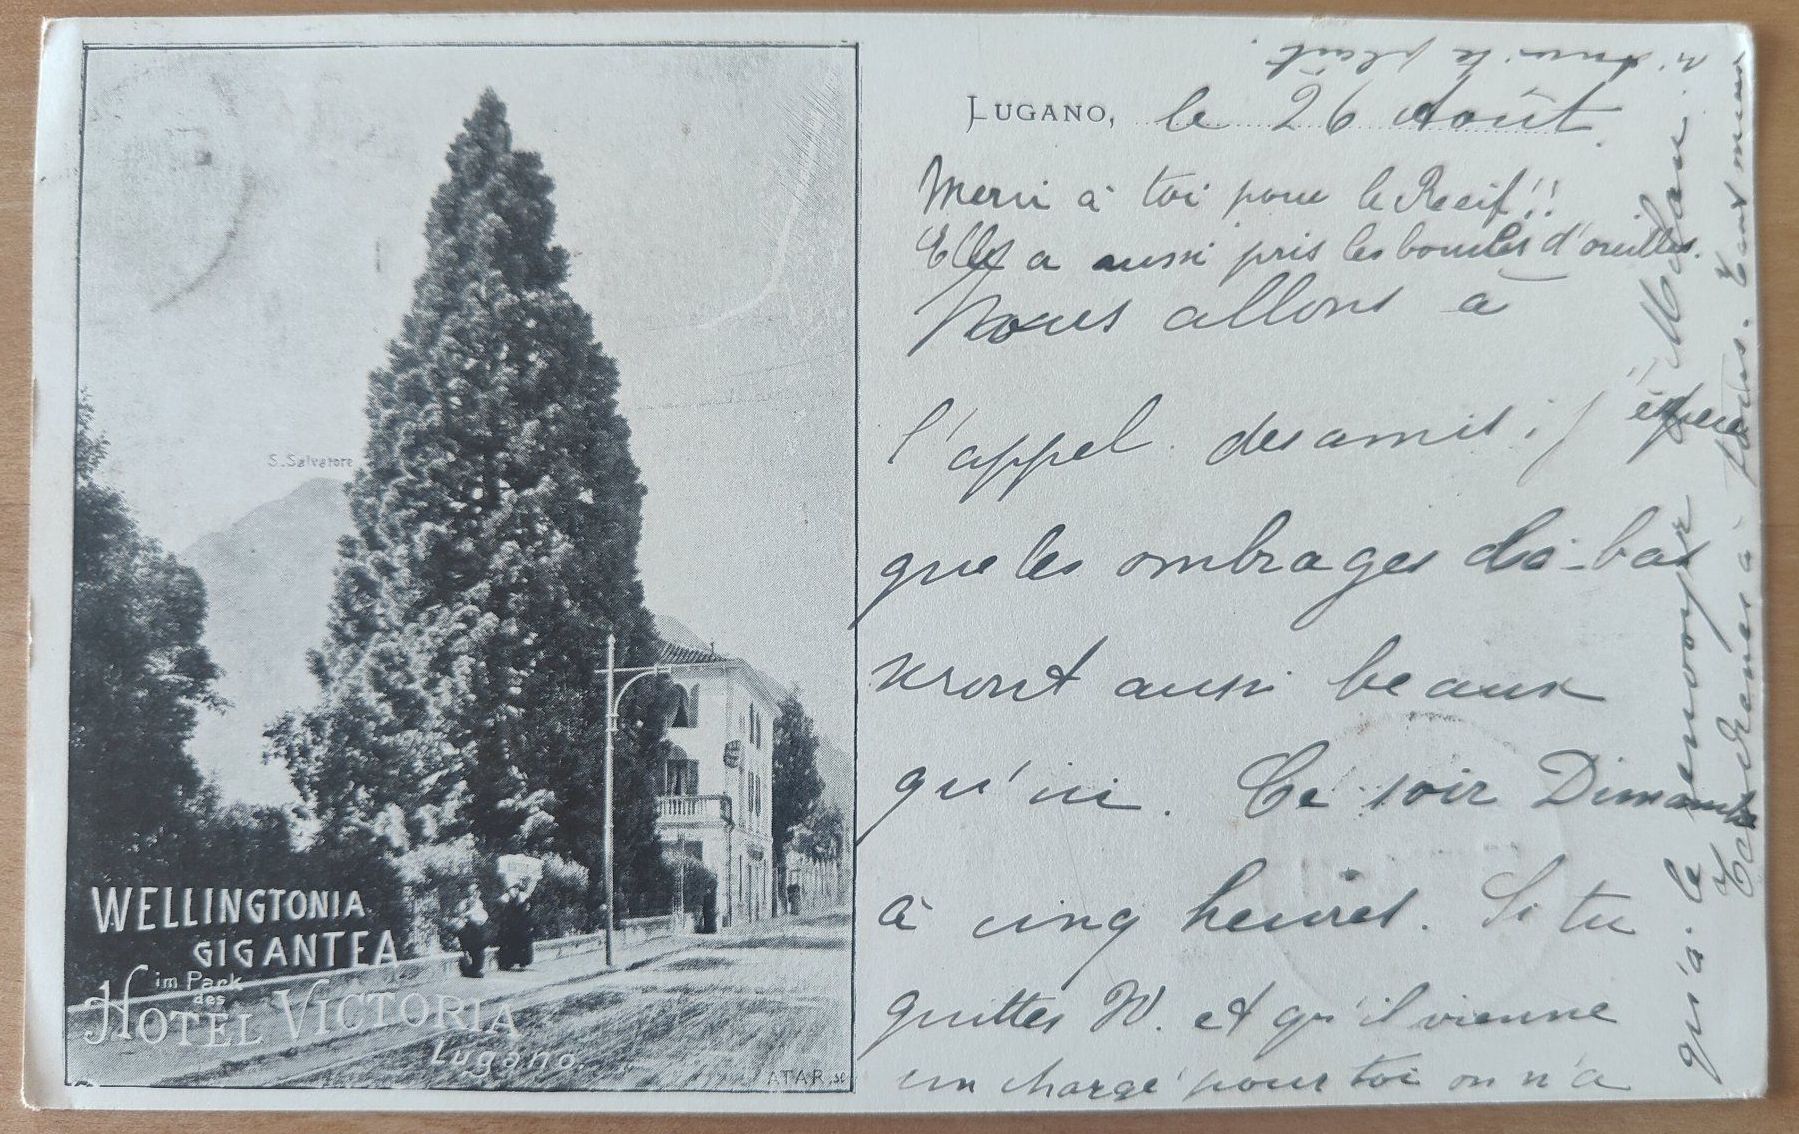 S. Salvatore
WELLINGTONIA
GIGANTEA
im Park
des
HOTEL VICTORIA
Lugano.
ATAR. SC
LUGANO, le 26 Août.
Merci à toi pour le Récif!!
Elle a aussi pris les boucles d'oreilles.
Nous allons à
l'appel des amis; j'espère
que les ombrages de là-bas
seront aussi beaux
qu'ici. Ce soir Dimanche
à cinq heures. Si tu
quittes W. et qu'il vienne
un chargé pour toi on n'a
qu'à le renvoyer "Milan".
Tendresses à toutes. Tant mieux
si Anvi te plait.